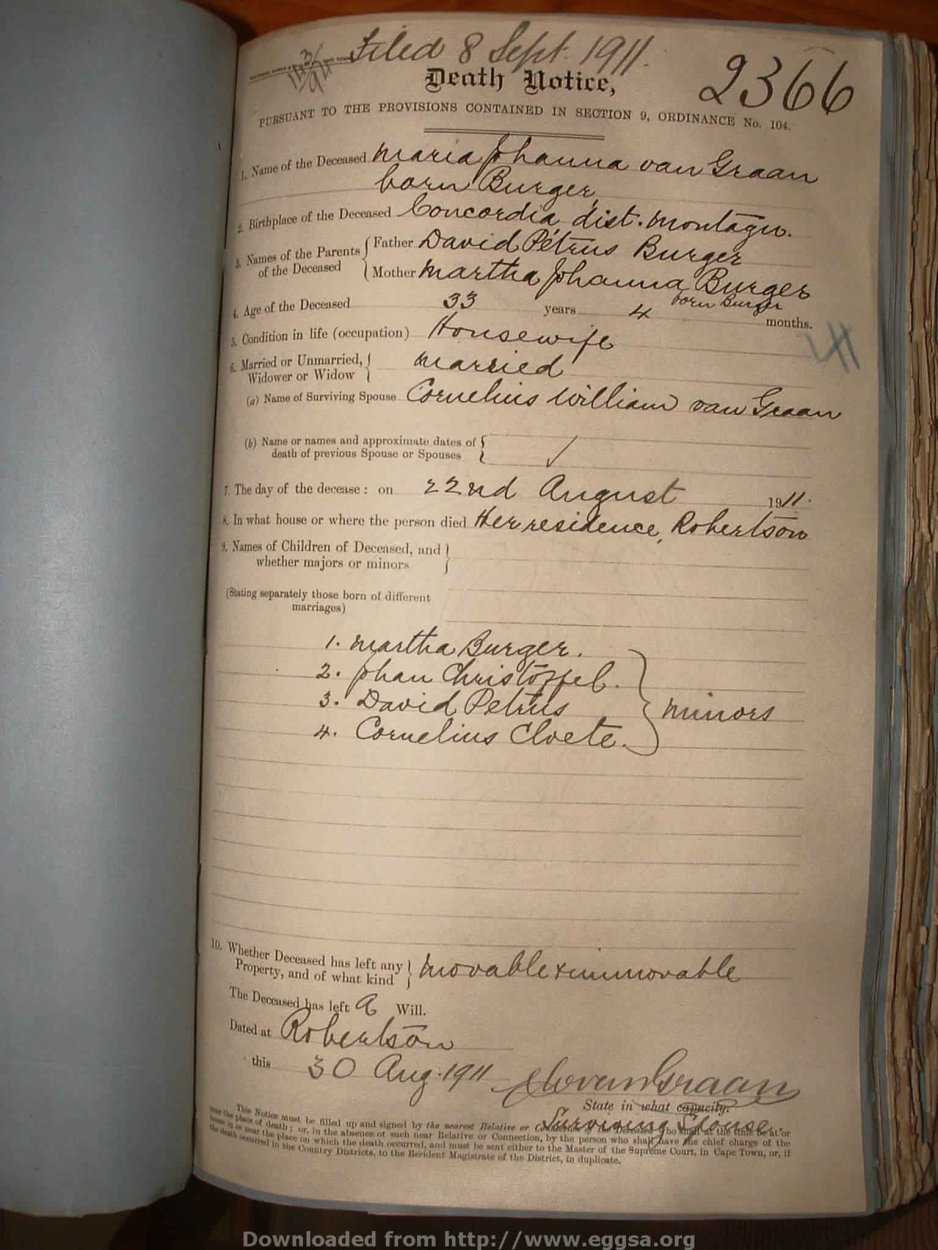 Filed 8 Sept. 1911.
Death Notice,
2366
PURSUANT TO THE PROVISIONS CONTAINED IN SECTION 9, ORDINANCE No. 104.
1. Name of the Deceased Maria Johanna van Graan
born Burger
2. Birthplace of the Deceased Concordia dist. Montagu.
3. Names of the Parents of the Deceased { Father David Petrus Burger
Mother Martha Johanna Burger
born Burger
4. Age of the Deceased 33 years 4 months.
5. Condition in life (occupation) Housewife
6. Married or Unmarried, Widower or Widow } Married
(a) Name of Surviving Spouse Cornelius William van Graan
(b) Name or names and approximate dates of
death of previous Spouse or Spouses {
7. The day of the decease: on 22nd August 1911.
8. In what house or where the person died Her residence, Robertson
9. Names of Children of Deceased, and }
whether majors or minors
(Stating separately those born of different
marriages)
1. Martha Burger.
2. Johan Christoffel.
3. David Petrus } minors
4. Cornelius Cloete.
10. Whether Deceased has left any } Movable & immovable
Property, and of what kind
The Deceased has left a Will.
Dated at Robertson
this 30 Aug. 1911 van Graan
State in what capacity.
Surviving Spouse.
This Notice must be filled up and signed by the nearest Relative or
near the place of death; or, in the absence of such near Relative or Connection, by the person who shall have the chief charge of the
house in or near the place on which the death occurred, and must be sent either to the Master of the Supreme Court, in Cape Town, or, if
the death occurred in the Country Districts, to the Resident Magistrate of the District, in duplicate.
Downloaded from http://www.eggsa.org